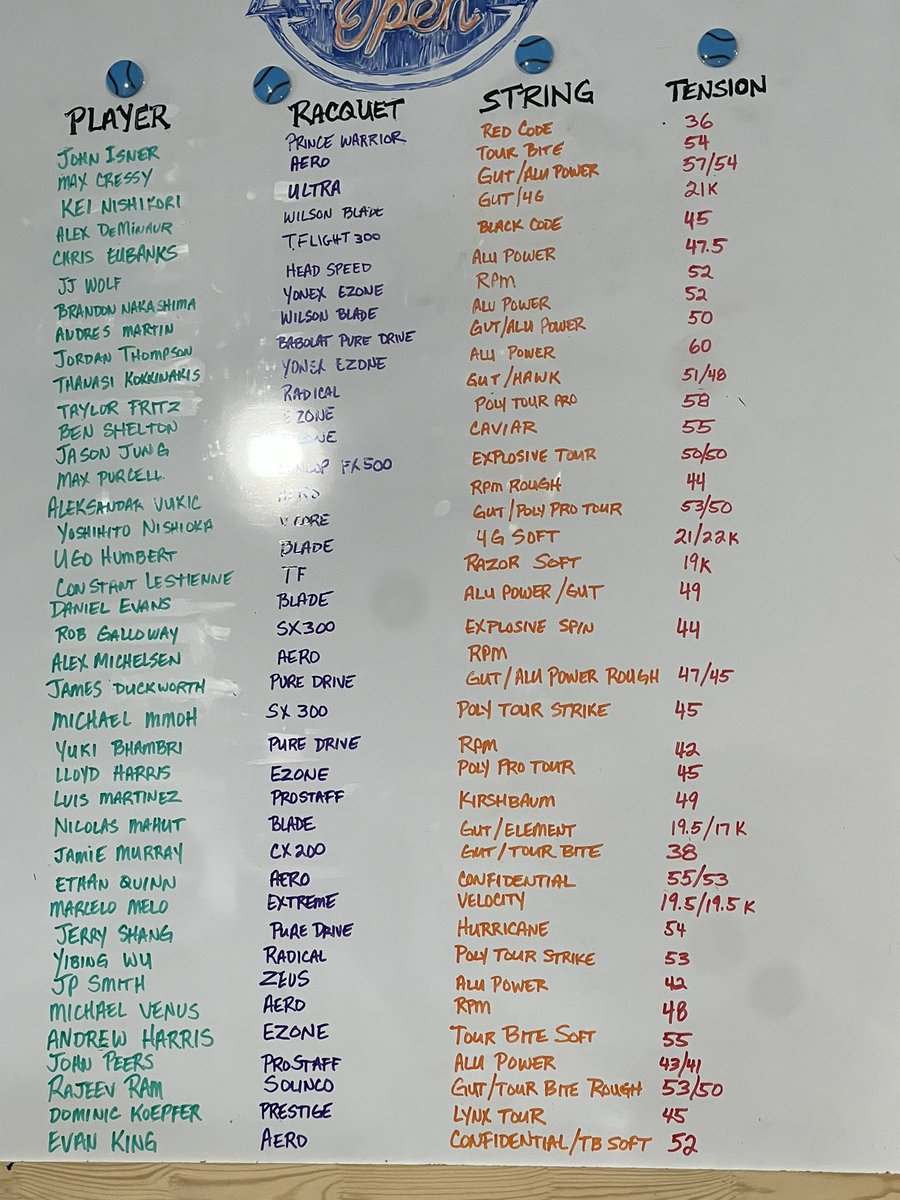 Open
PLAYER RACQUET STRING TENSION
JOHN ISNER PRINCE WARRIOR RED CODE 36
MAX CRESSY AERO TOUR BITE 54
KEI NISHIKORI ULTRA GUT/ALU POWER 57/54
ALEX DEMINAUR WILSON BLADE GUT/4G 21K
CHRIS EUBANKS TFLIGHT 300 BLACK CODE 45
JJ WOLF HEAD SPEED ALU POWER 47.5
BRANDON NAKASHIMA YONEX EZONE RPM 52
ANDRES MARTIN WILSON BLADE ALU POWER 52
JORDAN THOMPSON BABOLAT PURE DRIVE GUT/ALU POWER 50
THANASI KOKKINAKIS YONEX EZONE ALU POWER 60
TAYLOR FRITZ RADICAL GUT/HAWK 51/48
BEN SHELTON EZONE POLY TOUR PRO 58
JASON JUNG CAVIAR 55
MAX PURCELL DUNLOP FX500 EXPLOSIVE TOUR 50/50
ALEKSANDAR VUKIC AERO RPM ROUGH 44
YOSHIHITO NISHIOKA VCORE GUT/POLY PRO TOUR 53/50
UGO HUMBERT BLADE 4G SOFT 21/22K
CONSTANT LESTIENNE TF RAZOR SOFT 19K
DANIEL EVANS BLADE ALU POWER/GUT 49
ROB GALLOWAY SX300 EXPLOSIVE SPIN 44
ALEX MICHELSEN AERO RPM
JAMES DUCKWORTH PURE DRIVE GUT/ALU POWER ROUGH 47/45
MICHAEL MMOH SX 300 POLY TOUR STRIKE 45
YUKI BHAMBRI PURE DRIVE RPM 42
LLOYD HARRIS EZONE POLY PRO TOUR 45
LUIS MARTINEZ PROSTAFF KIRSHBAUM 49
NICOLAS MAHUT BLADE GUT/ELEMENT 19.5/17K
JAMIE MURRAY CX200 GUT/TOUR BITE 38
ETHAN QUINN AERO CONFIDENTIAL 55/53
MARCELO MELO EXTREME VELOCITY 19.5/19.5K
JERRY SHANG PURE DRIVE HURRICANE 54
YIBING WU RADICAL POLY TOUR STRIKE 53
JP SMITH ZEUS ALU POWER 42
MICHAEL VENUS AERO RPM 48
ANDREW HARRIS EZONE TOUR BITE SOFT 55
JOHN PEERS PROSTAFF ALU POWER 43/41
RAJEEV RAM SOLINCO GUT/TOUR BITE ROUGH 53/50
DOMINIC KOEPFER PRESTIGE LYNX TOUR 45
EVAN KING AERO CONFIDENTIAL/TB SOFT 52